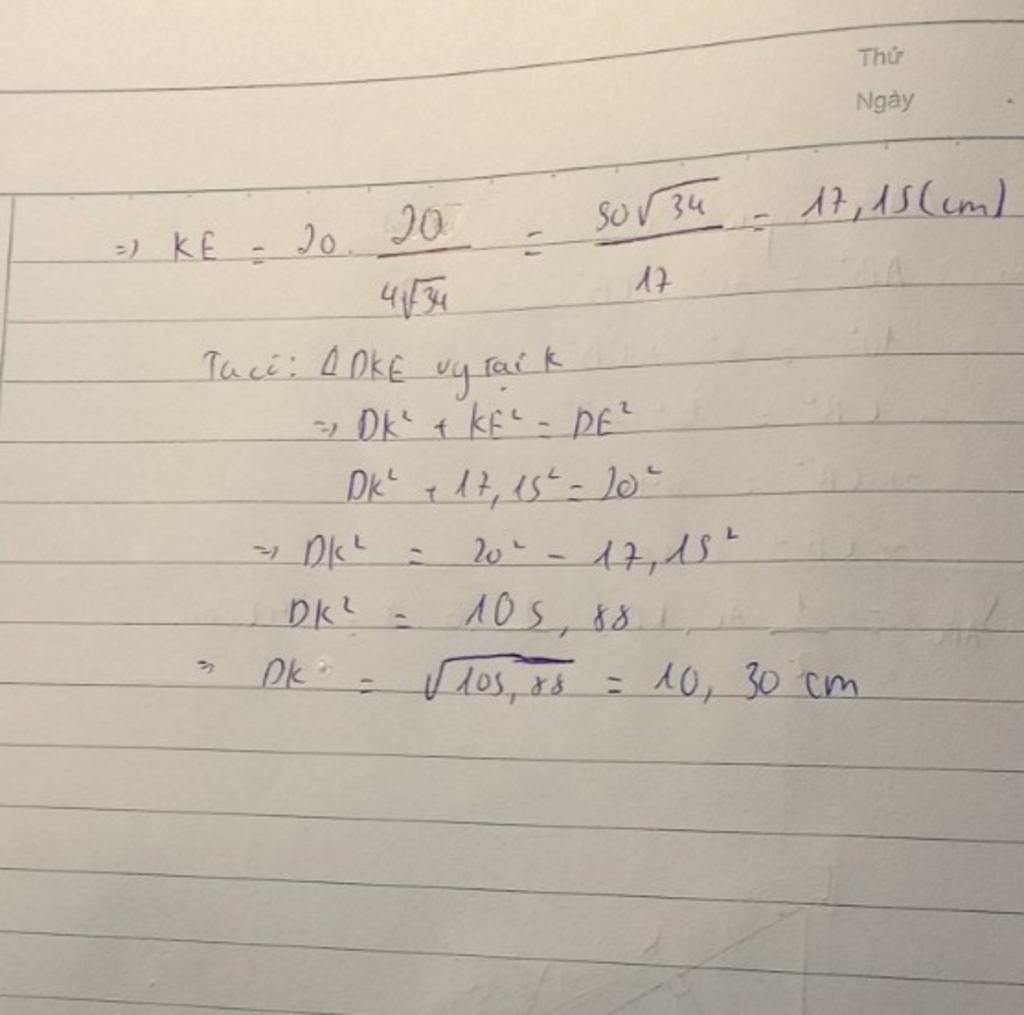 Thứ
Ngày
=> KE = 20 . 20/4√34 = 50√34/17 = 17,15 (cm)
Ta có: Δ DKE vg tại K
=> DK² + KE² = DE²
DK² + 17,15² = 20²
=> DK² = 20² - 17,15²
DK² = 105,88
=> DK = √105,88 = 10,30 cm